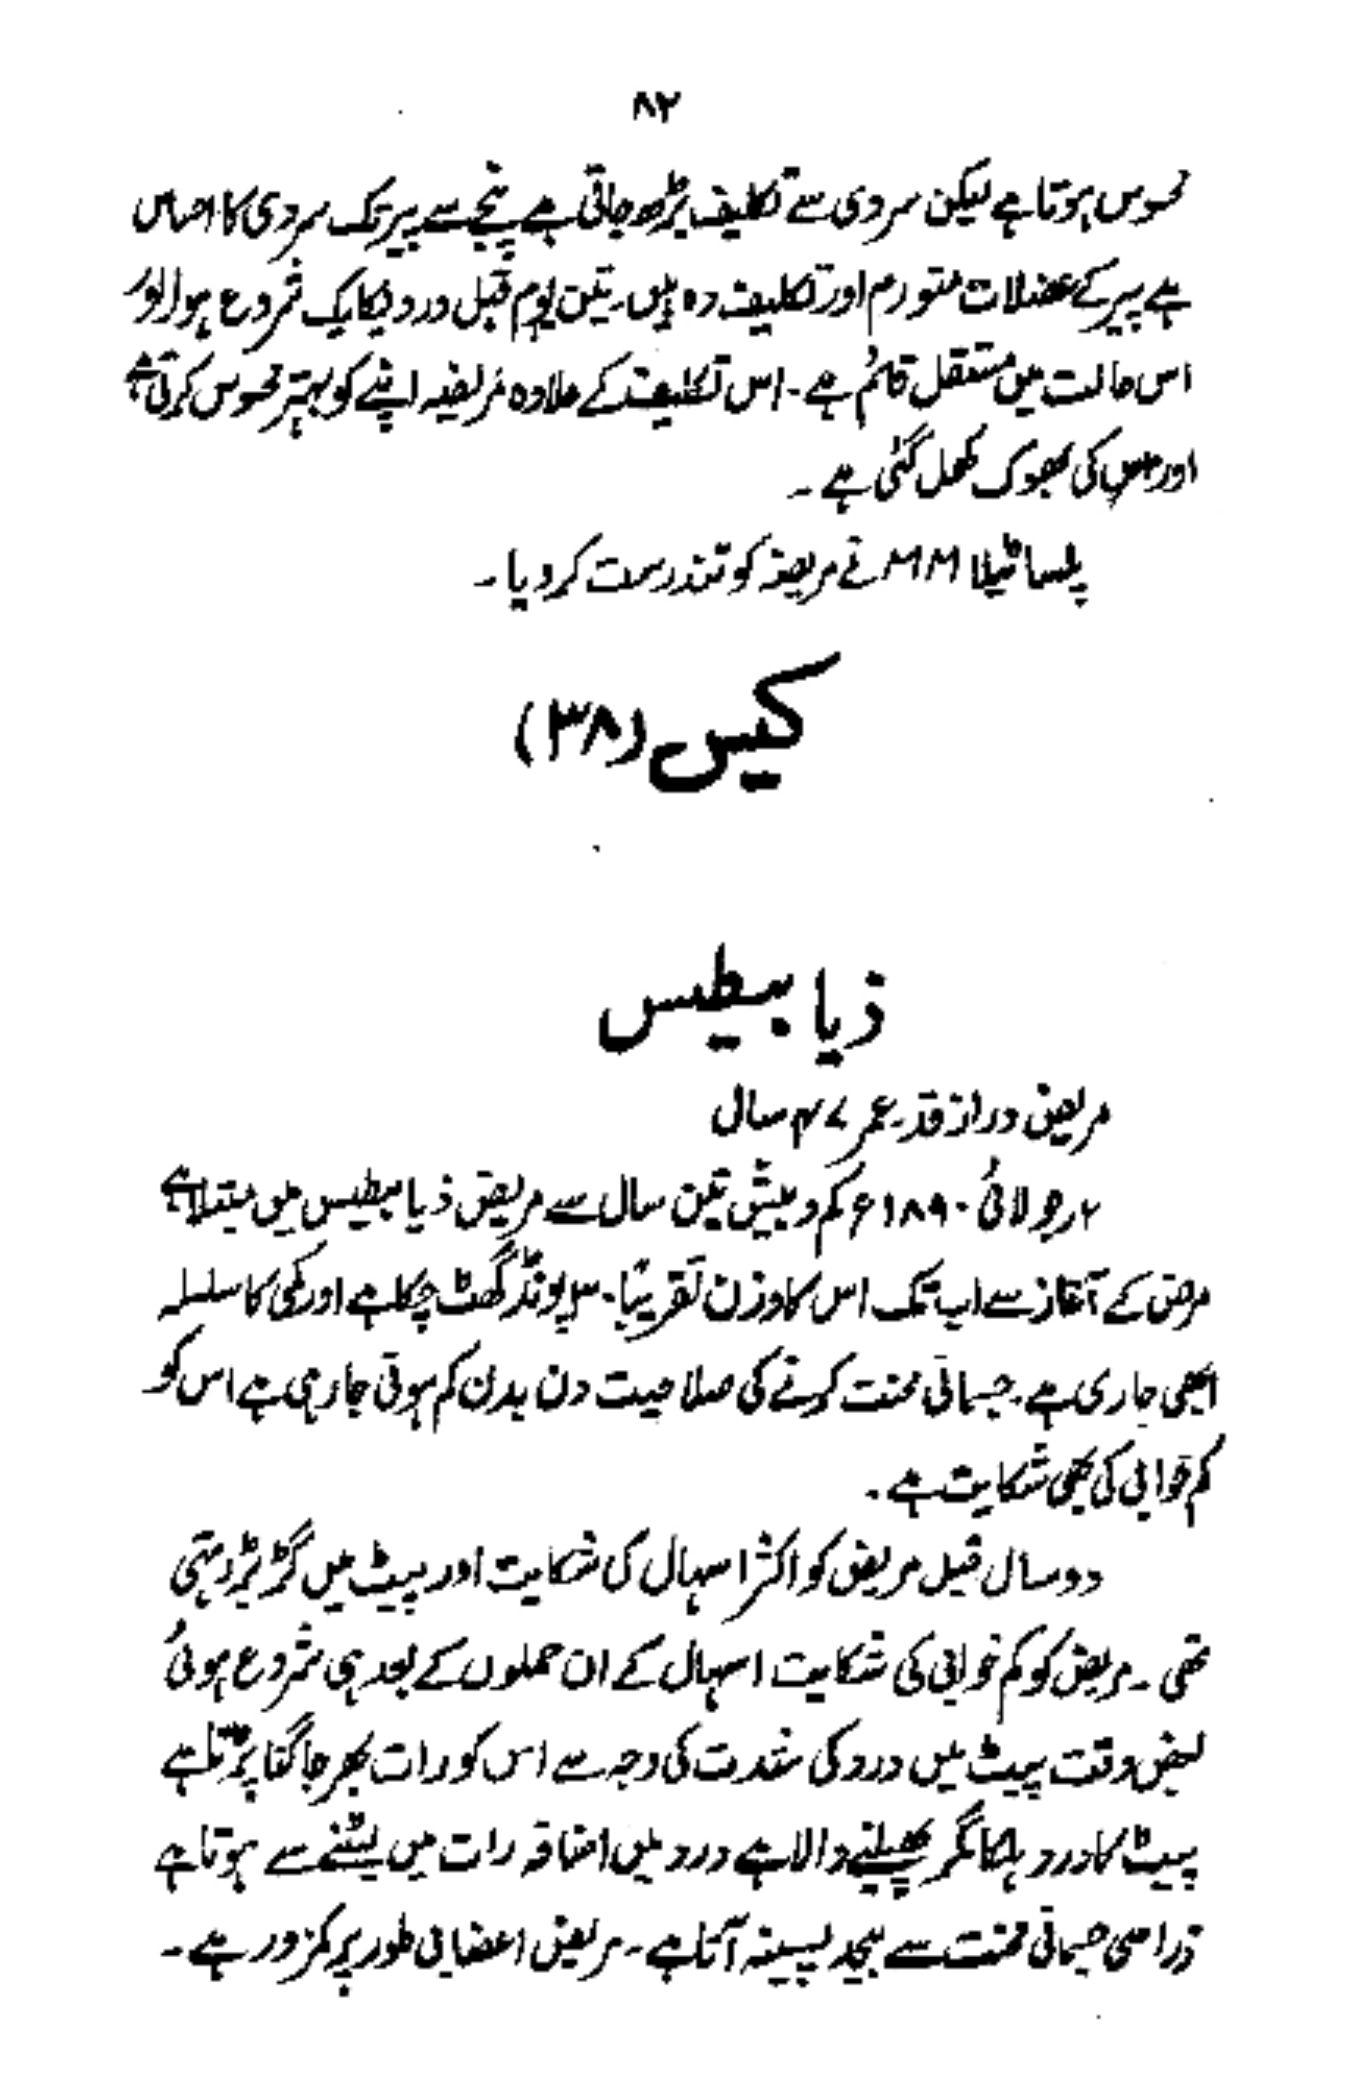 ۸۲
محسوس ہوتا ہے لیکن سردی سے تکلیف بڑھ جاتی ہے پنجے سے پیر تک سردی کا احساس
ہے پیر کے عضلات متورم اور تکلیف دہ ہیں۔ تین یوم قبل درد یکایک شروع ہوا اور
اس حالت میں مستقل قائم ہے۔ اس تکلیف کے علاوہ مریضہ اپنے کو بہتر محسوس کرتی ہے
اور اس کی بھوک کھل گئی ہے۔
پلساٹیلا MM نے مریضہ کو تندرست کر دیا۔
کیس (۳۸)
ذیابیطیس
مریض دراز قد۔ عمر ۴۷ سال
۲؍جولائی ۱۸۹۰ء کم و بیش تین سال سے مریض ذیابیطیس میں مبتلا ہے
مرض کے آغاز سے اب تک اس کا وزن تقریبًا ۳۰ پونڈ گھٹ چکا ہے اور کمی کا سلسلہ
ابھی جاری ہے۔ جسمانی محنت کرنے کی صلاحیت دن بدن کم ہوتی جا رہی ہے اس کو
کم خوابی کی بھی شکایت ہے۔
دو سال قبل مریض کو اکثر اسہال کی شکایت اور پیٹ میں گڑبڑ رہتی
تھی۔ مریض کو کم خوابی کی شکایت اسہال کے ان حملوں کے بعد ہی شروع ہوئی
بعض وقت پیٹ میں درد کی شدت کی وجہ سے اس کو رات بھر جاگنا پڑتا ہے
پیٹ کا درد ہلکا مگر پھیلنے والا ہے درد میں اضافہ رات میں لیٹنے سے ہوتا ہے
ذرا سی جسمانی محنت سے بیحد پسینہ آتا ہے۔ مریض اعصابی طور پر کمزور ہے۔